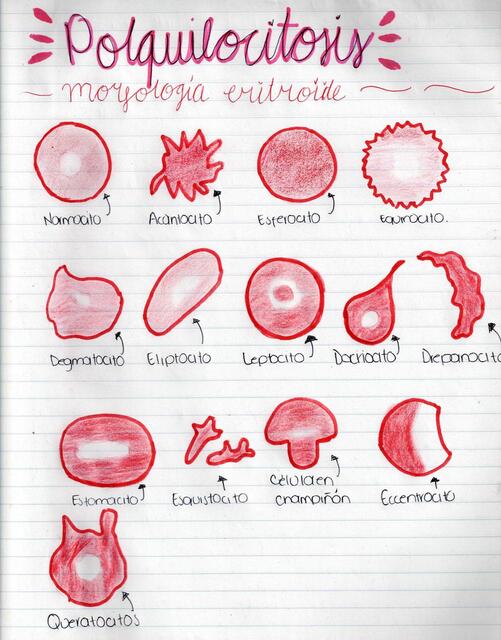 Polquilocitosis
morfología eritroide
Normocito Acantocito Esferocito Equinocito.
Degmatocito Eliptocito Leptocito Dacriocito Drepanocito
Estomacito Esquistocito Célula en champiñón Eccentrocito
Queratocitos